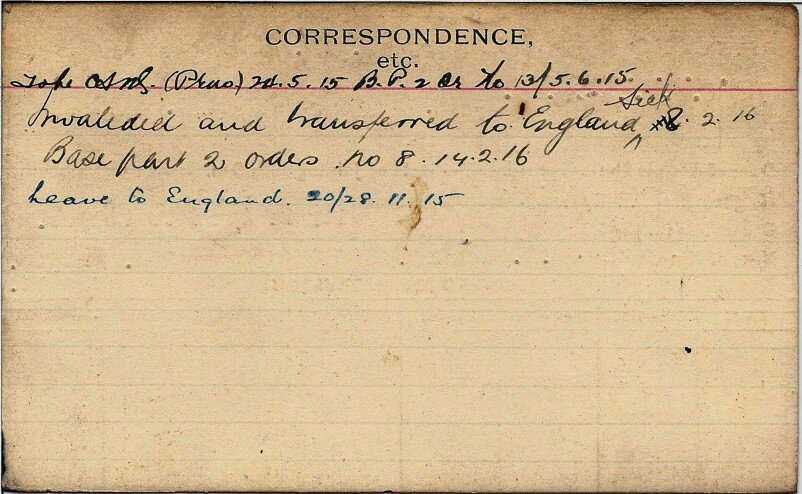 CORRESPONDENCE,
etc.
To be CSM. (Prov) 24.5.15 B.P. 2 Or No 13/5.6.15
Invalided and transferred to England ^ Sick 8. 2. 16
Base part 2 orders. no 8. 14.2.16
Leave to England. 20/28. 11. 15